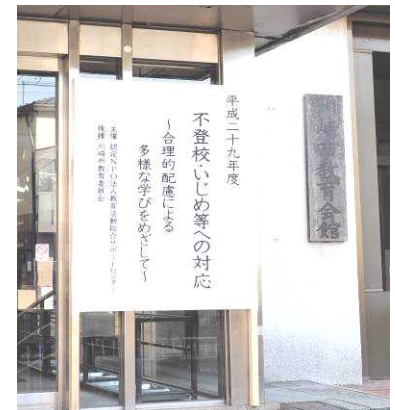 平成二十九年度
不登校・いじめ等への対応
～合理的配慮による
多様な学びをめざして～
主催 認定NPO法人教育活動総合サポートセンター
後援 川崎市教育委員会
川崎市教育会館